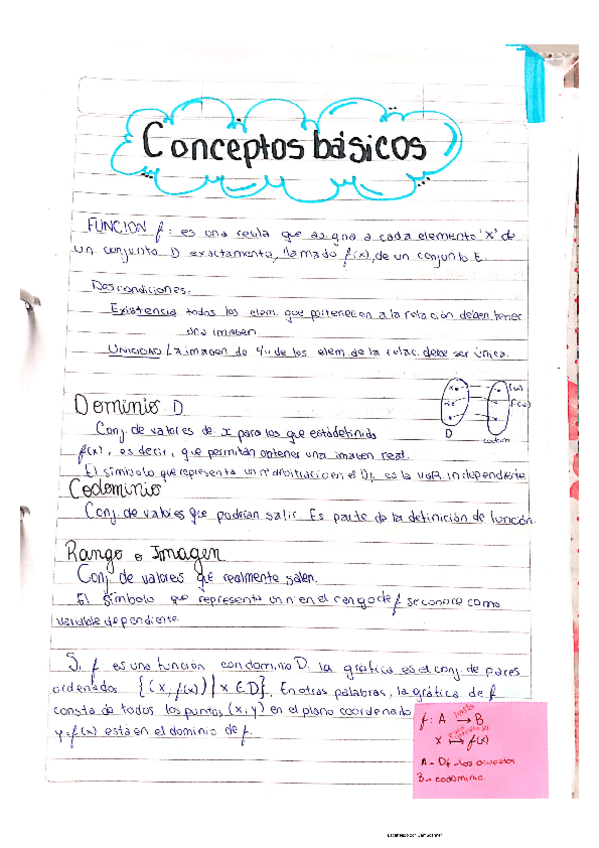 Conceptos básicos
FUNCION f: es una regla que asigna a cada elemento 'x' de
un conjunto D exactamente, llamado f(x), de un conjunto E.
Dos condiciones:
Existencia todos los elem. que pertenecen a la relación deben tener
una imagen
UNICIDAD La imagen de c/u de los elem de la relac. debe ser única.
Dominio D
Conj. de valores de x para los que está definida
f(x), es decir, que permitan obtener una imagen real.
El símbolo que representa un n° arbitrario en el Df es la var. independiente
D
f(x)
Codominio
Conj. de valores que podrían salir. Es parte de la definición de función.
Rango o Imagen
Conj. de valores que realmente salen.
El símbolo que representa un n° en el rango de f se conoce como
variable dependiente.
Si f es una función con dominio D. la gráfica es el conj. de pares
ordenados {(x, f(x)) | x ∈ D}. En otras palabras, la gráfica de f
consta de todos los puntos (x, y) en el plano coordenado
y=f(x) está en el dominio de f.
f: A → B
x ↦ f(x)
A - Df - los
B - codominio.